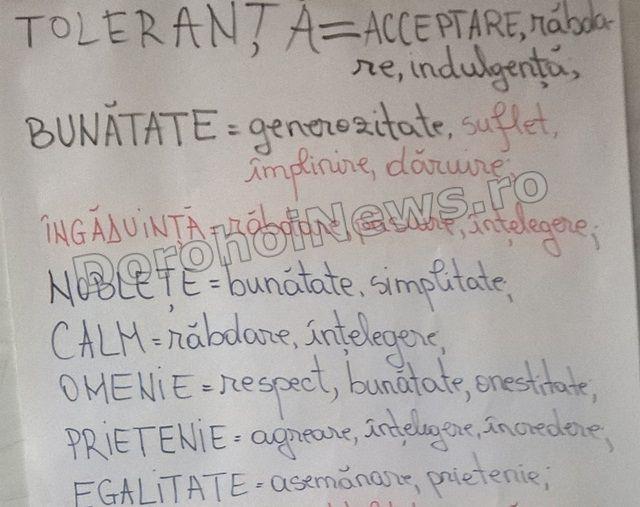 TOLERANȚĂ = ACCEPTARE, răbda-
re, indulgență,
BUNĂTATE = generozitate, suflet,
împlinire, dăruire;
ÎNGĂDUINȚĂ = răbdare, înțelegere;
DorohoiNews.ro
NOBLEȚE = bunătate, simplitate;
CALM = răbdare, înțelegere,
OMENIE = respect, bunătate, onestitate,
PRIETENIE = agreare, înțelegere, încredere,
EGALITATE = asemănare, prietenie;